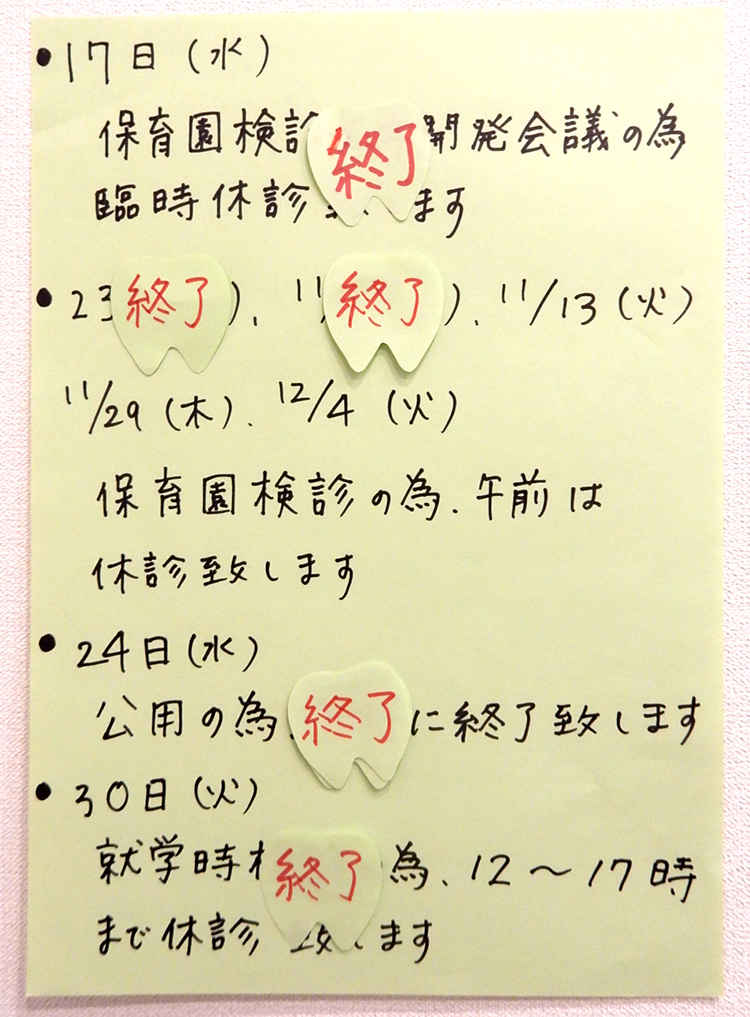 •17日(水)
保育園検診 終了 開発会議の為
臨時休診 ます
•23 終了 )、11/ 終了 )、11/13(火)
11/29(木)、12/4(火)
保育園検診の為、午前は
休診致します
•24日(水)
公用の為 終了 に終了致します
•30日(火)
就学時 終了 為、12〜17時
まで休診 致します